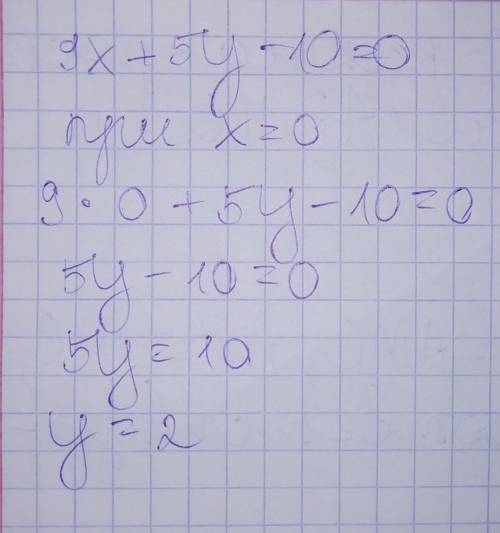 9x + 5y - 10 = 0
при x = 0
9 · 0 + 5y - 10 = 0
5y - 10 = 0
5y = 10
y = 2